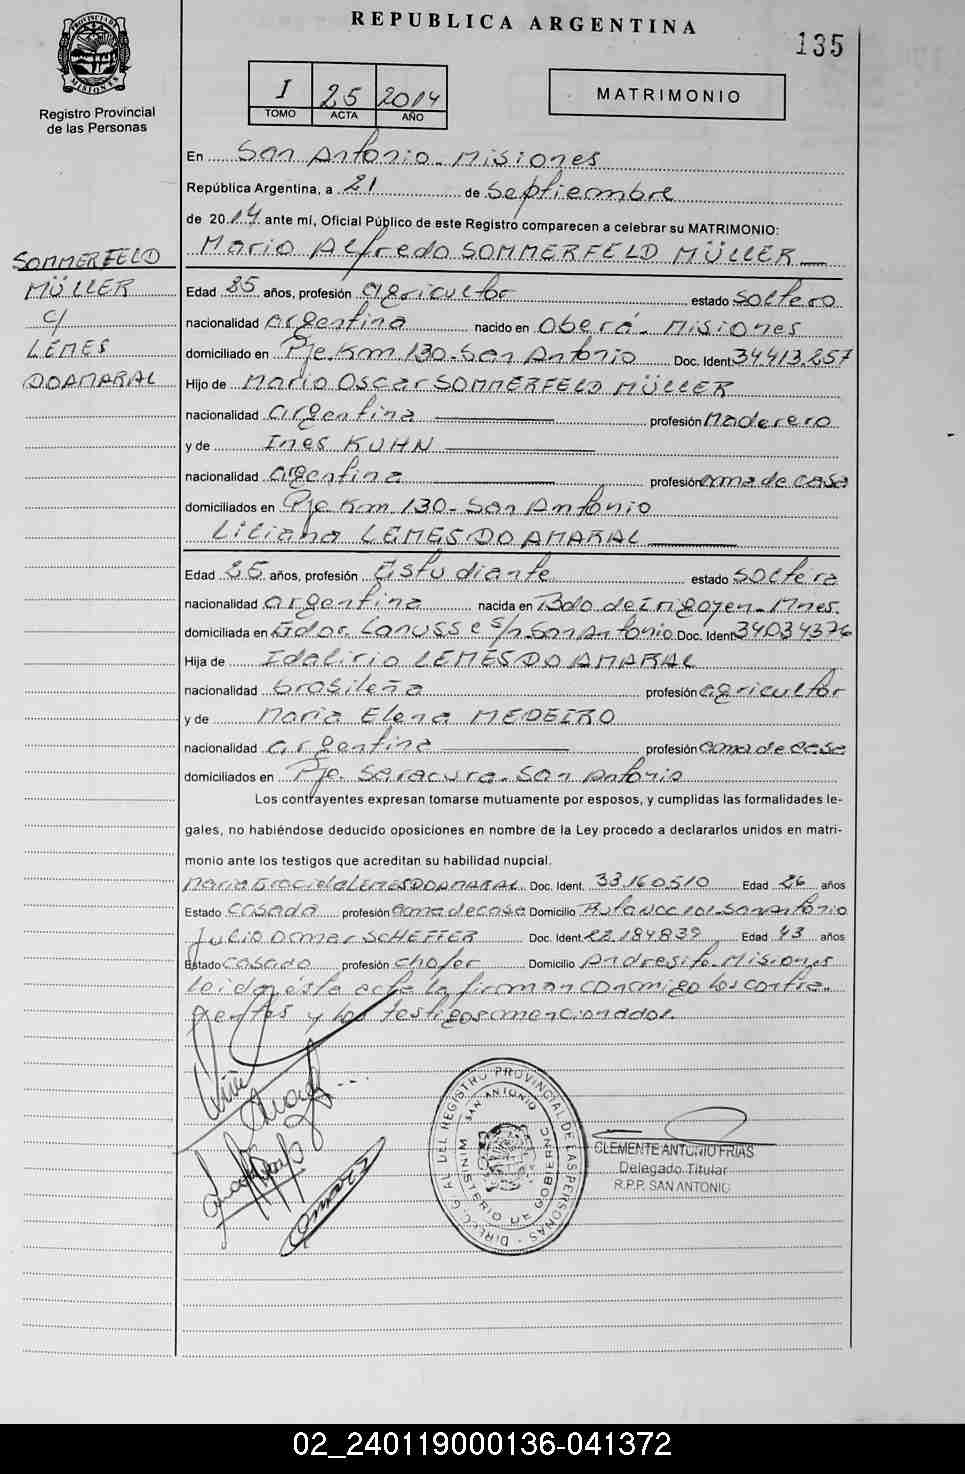 REPUBLICA ARGENTINA
135
PROVINCIA DE MISIONES
Registro Provincial
de las Personas
I 25 2014
TOMO ACTA AÑO
MATRIMONIO
En San Antonio - Misiones
República Argentina, a 21 de Septiembre
de 2014 ante mí, Oficial Público de este Registro comparecen a celebrar su MATRIMONIO:
Mario Alfredo SOMMERFELD MÜLLER
SOMMERFELD
MÜLLER
c/
LEMES
DOAMARAL
Edad 25 años, profesión agricultor estado soltero
nacionalidad argentina nacido en Oberá - Misiones
domiciliado en Pje. Km 130 - San Antonio Doc. Ident. 34413.257
Hijo de Mario Oscar SOMMERFELD MÜLLER
nacionalidad argentina profesión maderero
y de Ines KUHN
nacionalidad argentina profesión ama de casa
domiciliados en Pje Km 130 - San Antonio
Liliana LEMES DO AMARAL
Edad 25 años, profesión Estudiante estado soltera
nacionalidad argentina nacida en Bdo de Irigoyen - Mnes.
domiciliada en Gdor. Lanusse s/n San Antonio Doc. Ident. 34034376
Hija de Idalirio LEMES DO AMARAL
nacionalidad brasileña profesión agricultor
y de Maria Elena MEDEIRO
nacionalidad argentina profesión ama de casa
domiciliados en Pje. Saracura - San Antonio
Los contrayentes expresan tomarse mutuamente por esposos, y cumplidas las formalidades le-
gales, no habiéndose deducido oposiciones en nombre de la Ley procedo a declararlos unidos en matri-
monio ante los testigos que acreditan su habilidad nupcial.
Maria Graciela LEMES DO AMARAL Doc. Ident. 33160510 Edad 26 años
Estado casada profesión ama de casa Domicilio Ruta Nac 101 - San Antonio
Julio Omar SCHEFFER Doc. Ident. 22.184839 Edad 43 años
Estado casado profesión chofer Domicilio Andresito - Misiones
Leida esta acta la firman conmigo los contra-
yentes y los testigos mencionados.
DIREC. G'AL DEL REGISTRO PROVINCIAL DE LAS PERSONAS
MINISTERIO DE GOBIERNO
SAN ANTONIO
CLEMENTE ANTONIO FRIAS
Delegado Titular
R.P.P. SAN ANTONIO
02_240119000136-041372